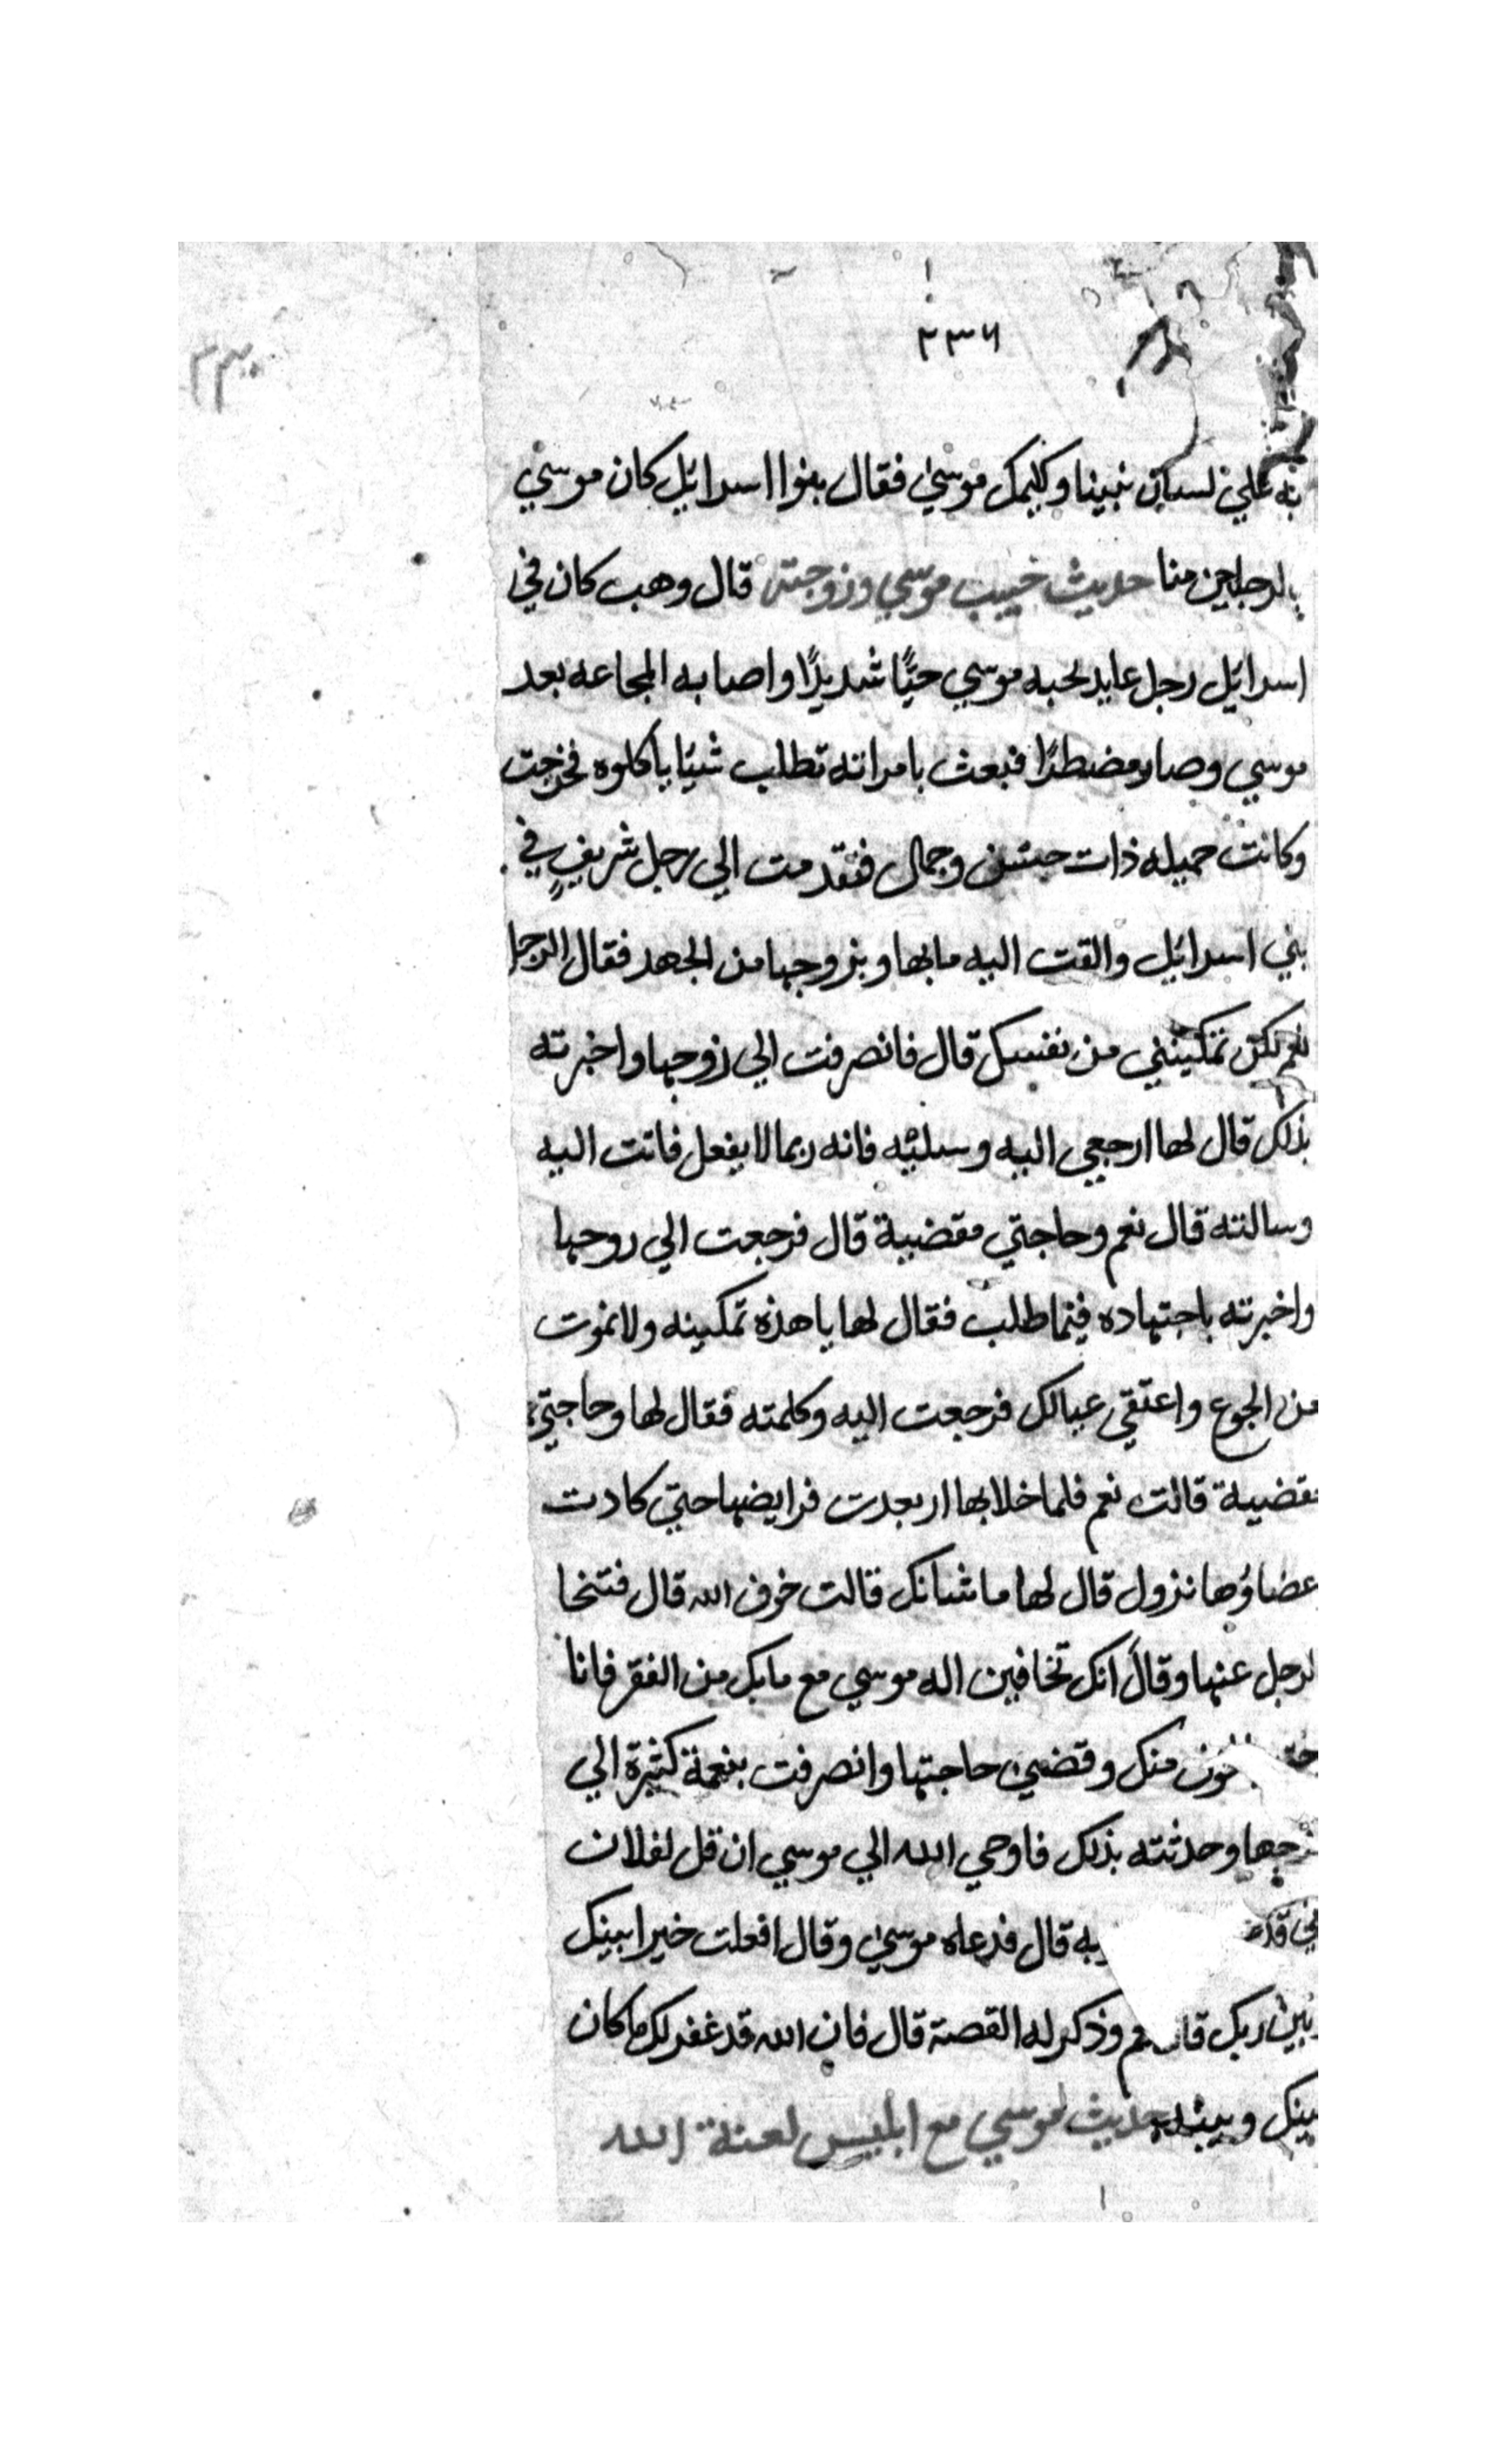 ٢٣٦
٢٣٠
به علي لسان نبينا وكليمك موسى فقال بنوا اسرائيل كان موسي
بالدجاجين منا حديث حبيب موسي وزوجته قال وهب كان في
اسرائيل رجل عابد لحبه موسي حبًّا شديدًا واصابه المجاعه بعد
موسي وصار مضطرًا فبعث بامراته تطلب شيًا يأكلوه فخرجت
وكانت جميله ذات حسن وجمال فتقدمت الي رجل شريفٍ في
بني اسرائيل والقت اليه ما بها وبزوجها من الجهد فقال الرجل
نعم لكن تمكينني من نفسك قال فانصرفت الي زوجها واخبرته
بذلك قال لها ارجعي اليه وسليه فانه ربما لا يفعل فاتت اليه
وسالته قال نعم وحاجتي مقضية قال فرجعت الي زوحها
واخبرته باجتهاده فيما طلب فقال لها يا هذه تمكينه ولا نموت
من الجوع واعتقي عيالك فرجعت اليه وكلمته فقال لها وحاجتي
مقضية قالت نعم فلما خلا بها اربعدت فرايضها حتي كادت
عضاؤها نزول قال لها ما شانك قالت خوف الله قال فتنحا
لرجل عنها وقال انك تخافين اله موسي مع ما بك من الفقر فانا
منك وقضي حاجتها وانصرفت بنعمة كثيرة الي
زوجها وحدثته بذلك فاوحي الله الي موسي ان قل لفلان
قال فدعاه موسى وقال افعلت خيرا بينك
وبين ربك قال نعم وذكر له القصة قال فان الله قد غفر لك ما كان
بينك وبينه حديث موسي مع ابليس لعنة الله